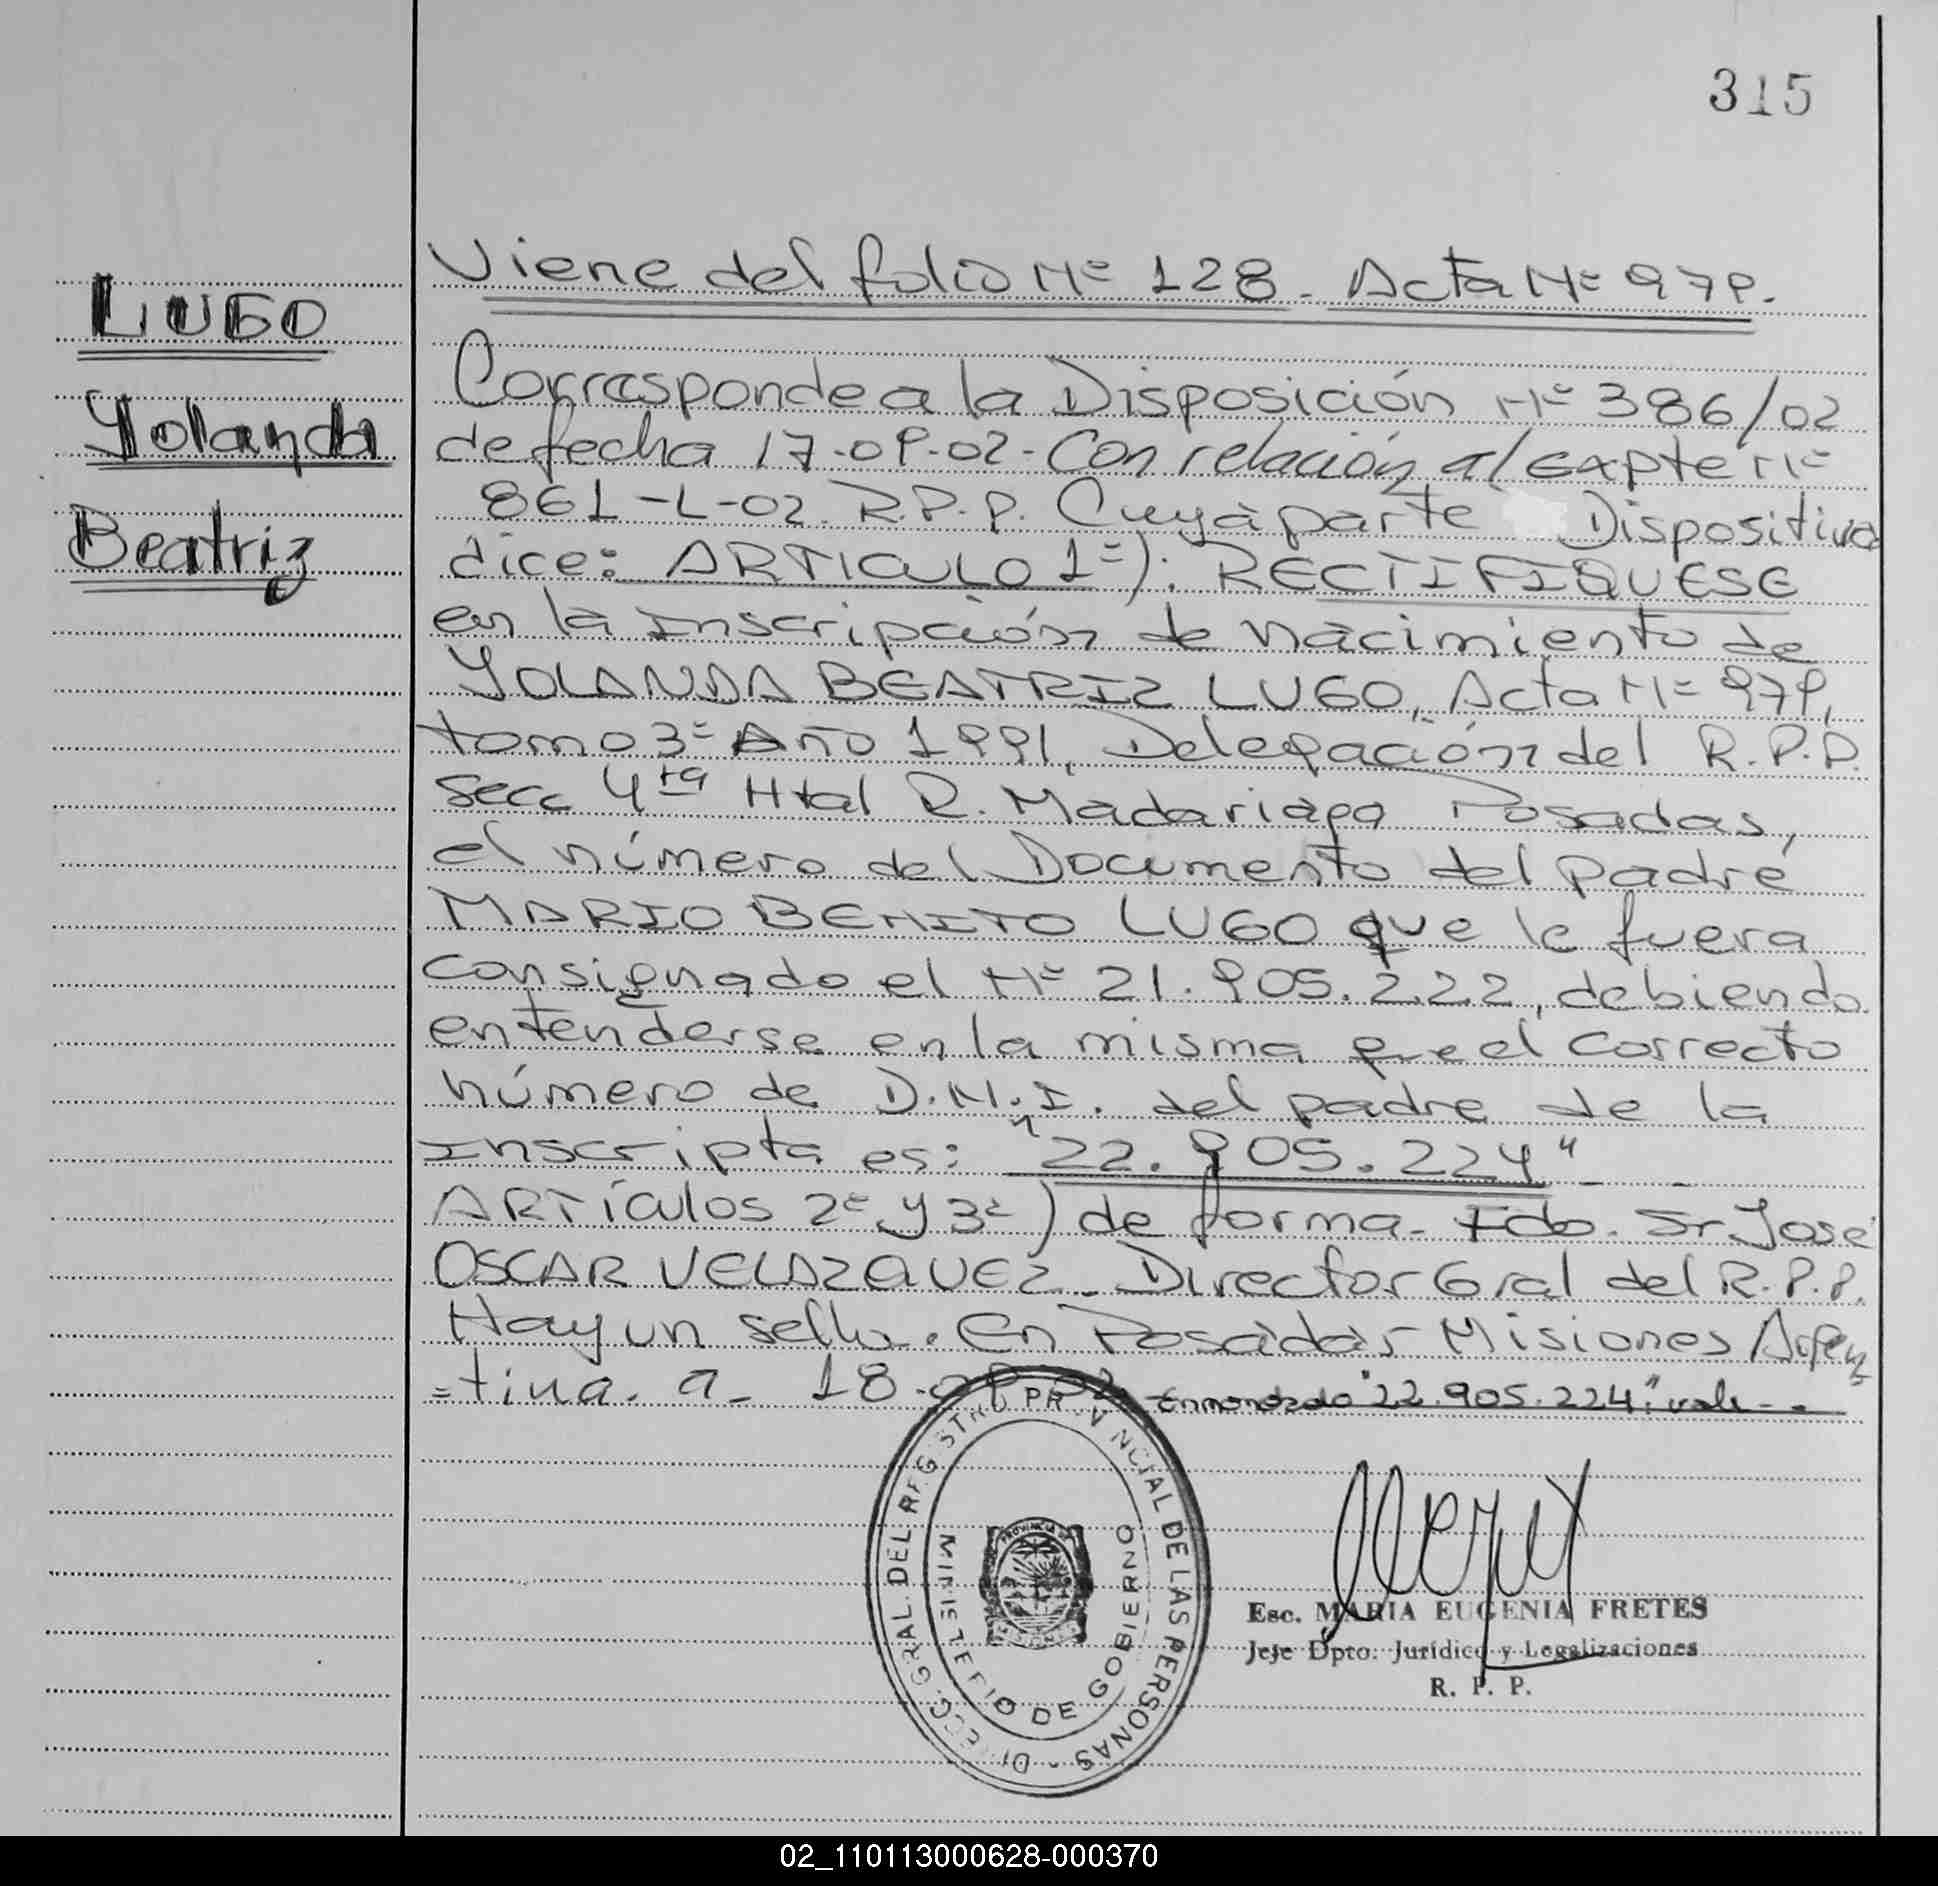 315
LUGO
Yolanda
Beatriz
Viene del folio Nº 128. Acta Nº 979.
Corresponde a la Disposición Nº 386/02
de fecha 17-09-02- Con relación al expte Nº
861-L-02. R.P.P. Cuya parte Dispositiva
dice: ARTICULO 1º): RECTIFIQUESE
en la Inscripción de nacimiento de
YOLANDA BEATRIZ LUGO, Acta Nº 979,
tomo 3º Año 1991, Delegación del R.P.P.
secc 4ta Htal R. Madariaga Posadas,
el número del Documento del padre
MARIO BENITO LUGO que le fuera
consignado el Nº 21.905.222, debiendo
entenderse en la misma que el correcto
número de D.N.I. del padre de la
Inscripta es: "22.905.224"
ARTículos 2º y 3º) de forma. Fdo. Sr José
OSCAR VELAZQUEZ. Director Gral del R.P.P.
Hay un sello. En Posadas Misiones Argen
=tina. a- 18-09-02. Enmendado "22.905.224" vale-.
DIRECC. GRAL. DEL REGISTRO PROVINCIAL DE LAS PERSONAS -
MINISTERIO DE GOBIERNO
PROVINCIA DE
Esc. MARIA EUGENIA FRETES
Jefe Dpto. Jurídico y Legalizaciones
R. P. P.
02_110113000628-000370